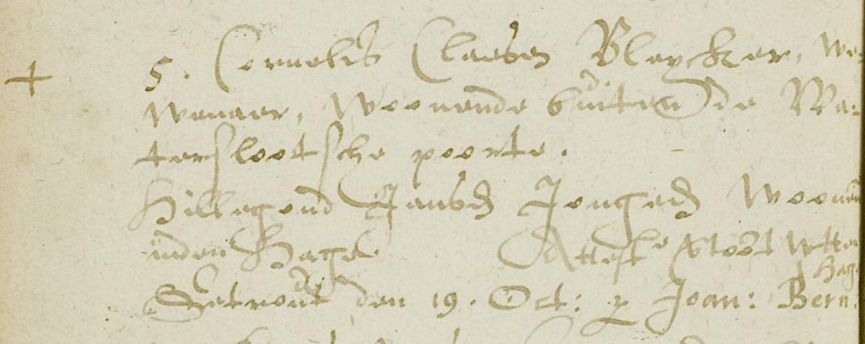 + 5. Cornelis Claesen Bleycker, We-
wenaer, Woonende buiten de Wa-
terslootsche poorte.
Hillegond Jansd Jonged Woonen
inden Hage. Attest. Noot Wtten
Hag
Getrout den 19. Oct: p Joan: Bern